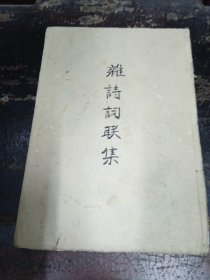 雜詩詞联集